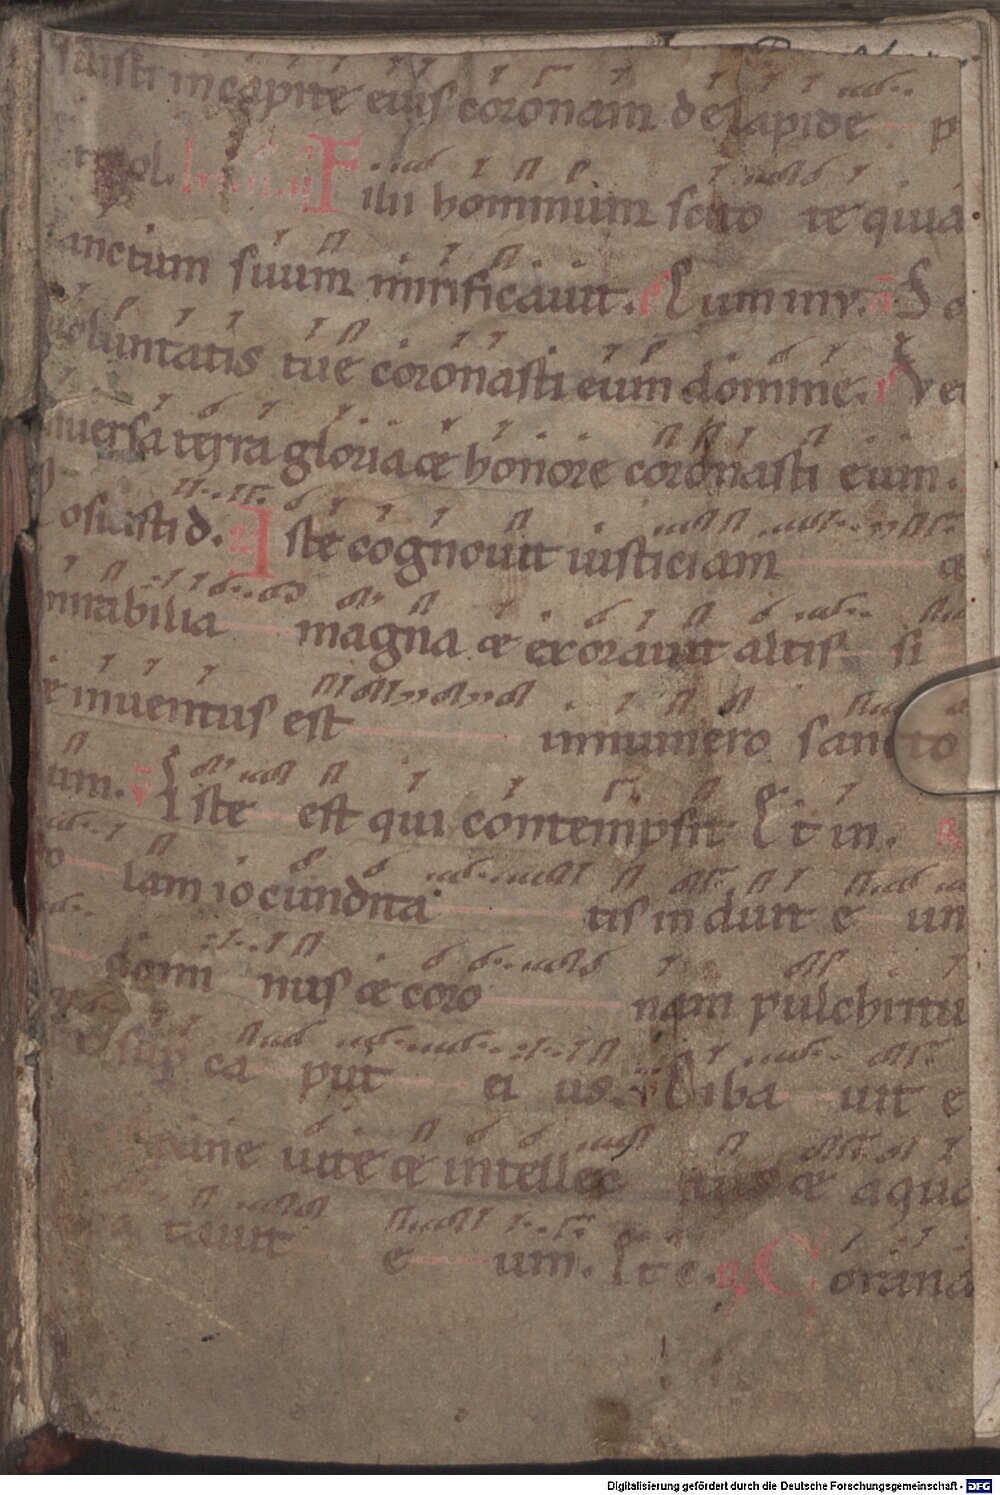 suisti in capite eius coronam de lapide p
tiosol. Filii hominum scito te quia
anctum suum mirificauit. Cum inv. a Sc
uoluntatis tue coronasti eum domine. Ver
niuersa terra gloria & honore coronasti eum.
Posuisti d. Iste cognouit iusticiam &
mirabilia magna & exorauit altis si
& inuentus est in numero sancto
um. Iste est qui contempsit Et in.
to lam iocundita tis induit e un
domi nus & coro nam pulchritu
sup ca put ei us. Ciba uit e
pane uite & intellec tus & aqua
tauit e um. Et c. Corona
Digitalisierung gefördert durch die Deutsche Forschungsgemeinschaft - DFG